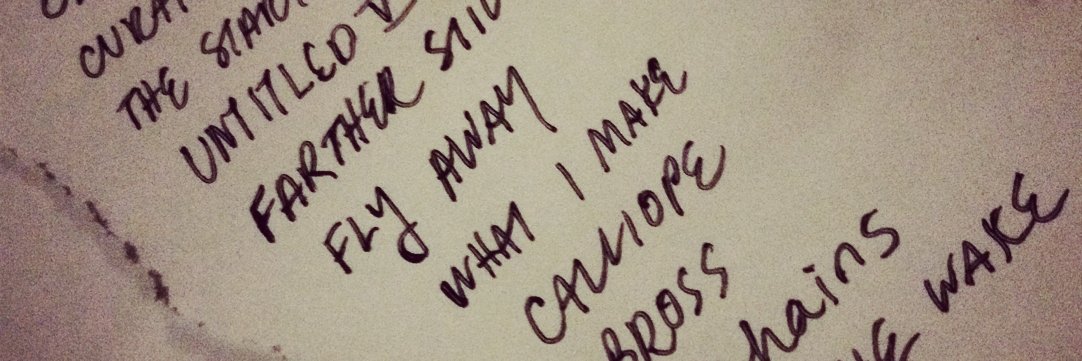 THE
UNTITLED V
FARTHER
FLY AWAY
WHAT I MAKE
CALLIOPE
BROSS
hains
WAKE